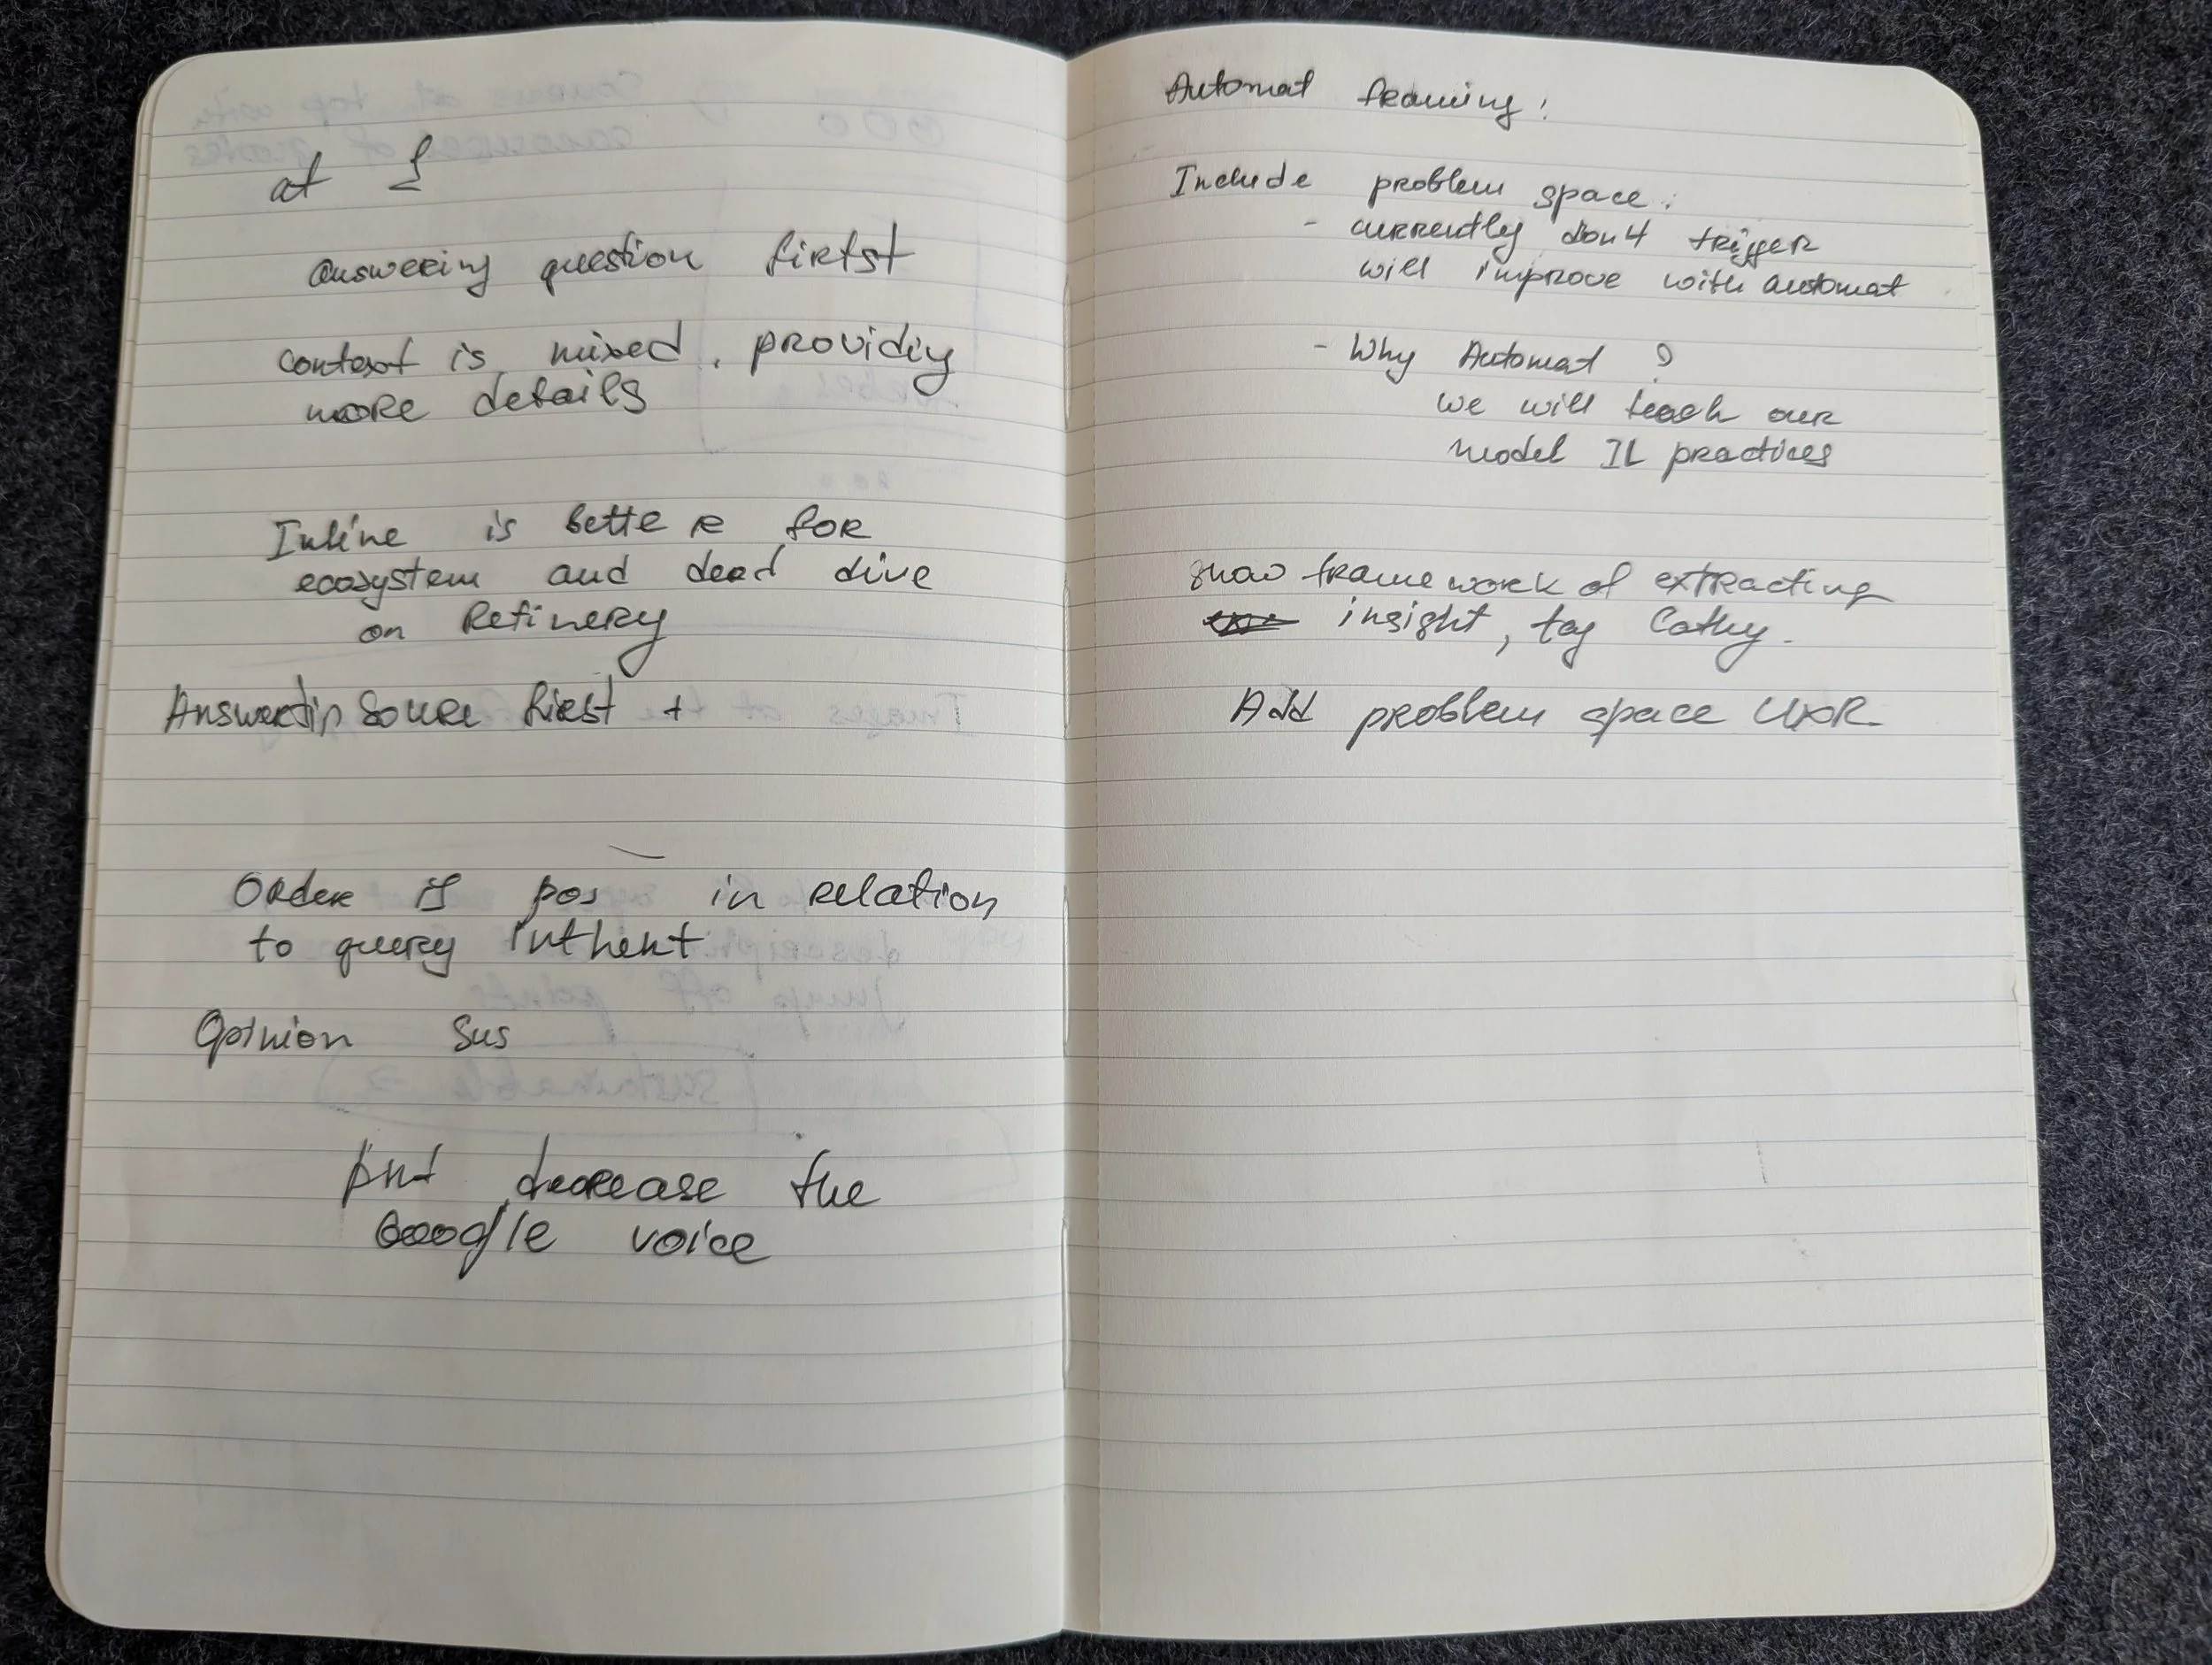 at {
answering question firtst
context is mixed, providing
more details
Inline is better for
ecosystem and deed dive
on Refinery
Source first +
Order is pos in relation
to query inthent
Opinion Sus
decrease the
Google voice
Automat framing:
Include problem space:
- currently don't trigger
will improve with automat
- Why Automat ?
we will teach our
model IL practices
show framework of extracting
insight, tag Cathy.
Add problem space UXR